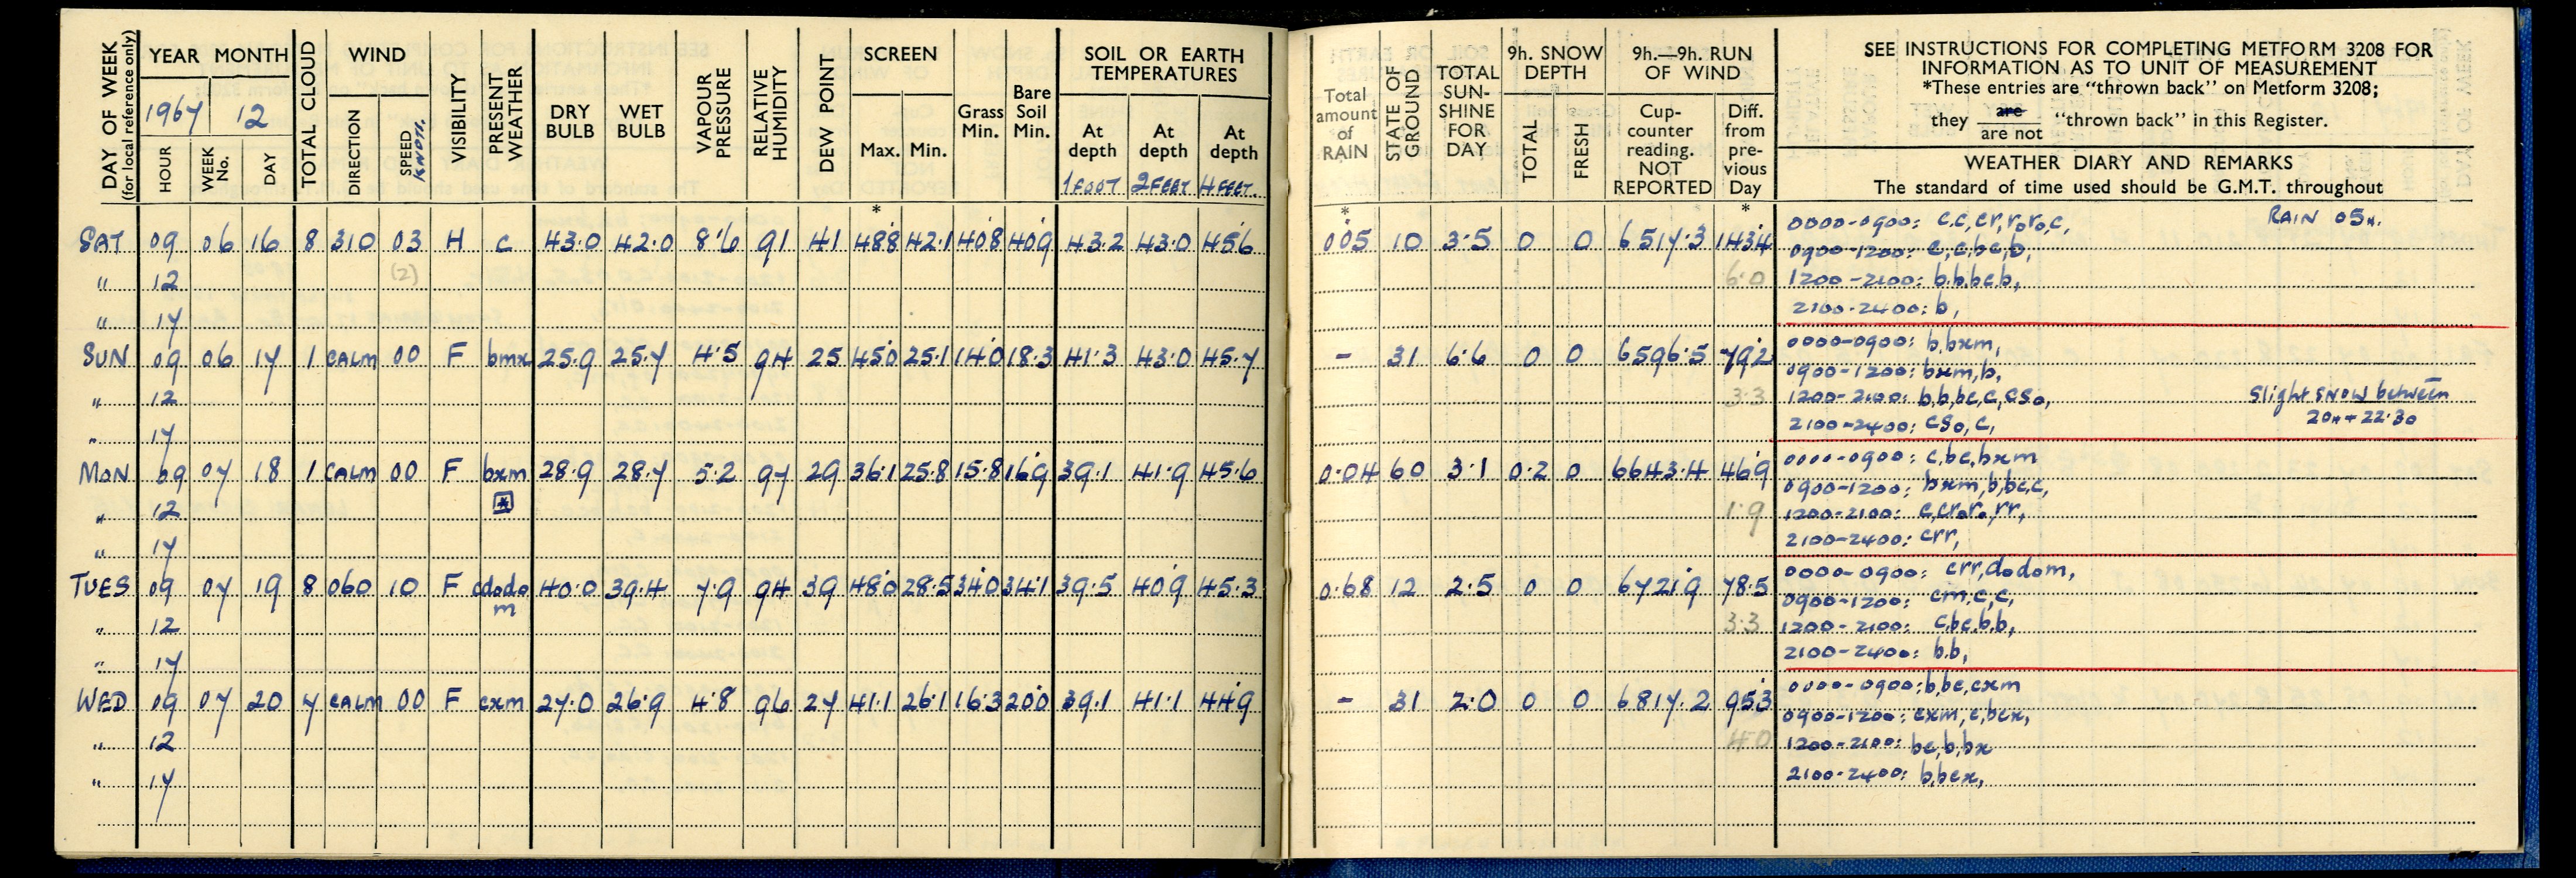 DAY OF WEEK (for local reference only)
YEAR MONTH
1967 12
HOUR WEEK No. DAY
TOTAL CLOUD
WIND
DIRECTION SPEED KNOTS.
VISIBILITY
PRESENT WEATHER
DRY BULB
WET BULB
VAPOUR PRESSURE
RELATIVE HUMIDITY
DEW POINT
SCREEN
Max. Min.
Grass Min.
Bare Soil Min.
SOIL OR EARTH TEMPERATURES
At depth At depth At depth
1 FOOT 2 FEET 4 FEET
Total amount of RAIN
STATE OF GROUND
TOTAL SUN-SHINE FOR DAY
9h. SNOW DEPTH
TOTAL FRESH
9h.—9h. RUN OF WIND
Cup-counter reading. NOT REPORTED
Diff. from pre-vious Day
SEE INSTRUCTIONS FOR COMPLETING METFORM 3208 FOR
INFORMATION AS TO UNIT OF MEASUREMENT
*These entries are "thrown back" on Metform 3208;
they are / are not "thrown back" in this Register.
WEATHER DIARY AND REMARKS
The standard of time used should be G.M.T. throughout
* * *
SAT 09 06 16 8 310 03 H c 43.0 42.0 8.6 91 41 48.8 42.1 40.8 40.9 43.2 43.0 45.6 0.05 10 3.5 0 0 6517.3 143.4 0000-0900: c,c,cr,roro,c, RAIN 05h.
0900-1200: c,c,bc,b,
" 12 (2) 6.0 1200-2100: b,b,bc,b,
" 17 2100-2400: b,
SUN 09 06 17 1 CALM 00 F bmx 25.9 25.7 4.5 94 25 45.0 25.1 14.0 18.3 41.3 43.0 45.7 - 31 6.6 0 0 6596.5 79.2 0000-0900: b,bxm,
0900-1200: bxm,b,
" 12 3.3 1200-2100: b,b,bc,c,cso, Slight snow between
" 17 2100-2400: cso,c, 20h + 22.30
MON 09 07 18 1 CALM 00 F bxm 28.9 28.7 5.2 97 29 36.1 25.8 15.8 16.9 39.1 41.9 45.6 0.04 60 3.1 0.2 0 6643.4 46.9 0000-0900: c,bc,bxm
0900-1200: bxm,b,bc,c,
" 12 1.9 1200-2100: c,croro,rr,
" 17 2100-2400: crr,
TUES 09 07 19 8 060 10 F cdodo m 40.0 39.4 7.9 94 39 48.0 28.5 34.0 34.1 39.5 40.9 45.3 0.68 12 2.5 0 0 6721.9 78.5 0000-0900: crr,dodom,
0900-1200: cm,c,c,
" 12 3.3 1200-2100: c,bc,b,b,
" 17 2100-2400: b,b,
WED 09 07 20 7 CALM 00 F cxm 27.0 26.9 4.8 96 27 41.1 26.1 16.3 20.0 39.1 41.1 44.9 - 31 2.0 0 0 6817.2 95.3 0000-0900: b,bc,cxm
0900-1200: cxm,c,bcx,
" 12 4.0 1200-2100: bc,b,bx
" 17 2100-2400: b,bcx,